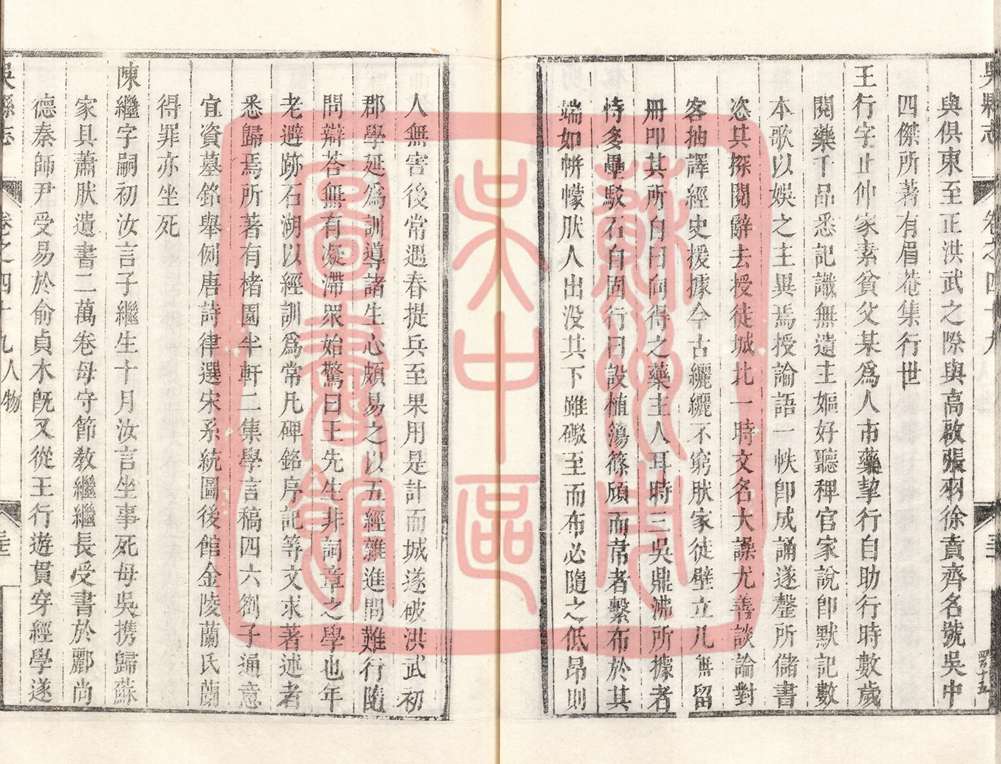 吳縣志 卷之四十九
與俱東至正洪武之際與高啟張羽徐賁齊名號吳中
四傑所著有眉菴集行世
王行字止仲家素貧父某爲人市藥挈行自助行時數歲
閱藥千品悉記識無遺主嫗好聽稗官家說卽默記數
本歌以娛之主異焉授論語一帙卽成誦遂罄所儲書
恣其探閱辭去授徒城北一時文名大譟尤善談論對
客抽譯經史援據今古纚纚不窮肰家徒壁立几無留
冊叩其所自曰向得之藥主人耳時三吳鼎沸所據者
恃多壘駁石自固行曰設植簜篠頎而常者繫布於其
端如帡幪肰人出没其下雖礮至而布必隨之低昂則
人無害後常遇春提兵至果用是計而城遂破洪武初
郡學延爲訓導諸生心頗易之以五經雜進問難行隨
問辯荅無有凝滯眾始驚曰王先生非詞章之學也年
老避跡石湖以經訓爲常凡碑銘序記等文求著述者
悉歸焉所著有楮園半軒二集學言稿四六劄子通意
宜資墓銘舉例唐詩律選宋系統圖後館金陵蘭氏蘭
得罪亦坐死
陳繼字嗣初汝言子繼生十月汝言坐事死母吳携歸蘇
家具蕭肰遺書二萬卷母守節教繼繼長受書於酈尚
德秦師尹受易於俞貞木旣又從王行遊貫穿經學遂
吳縣志 卷之四十九 人物
蘇州市吳中區圖書館